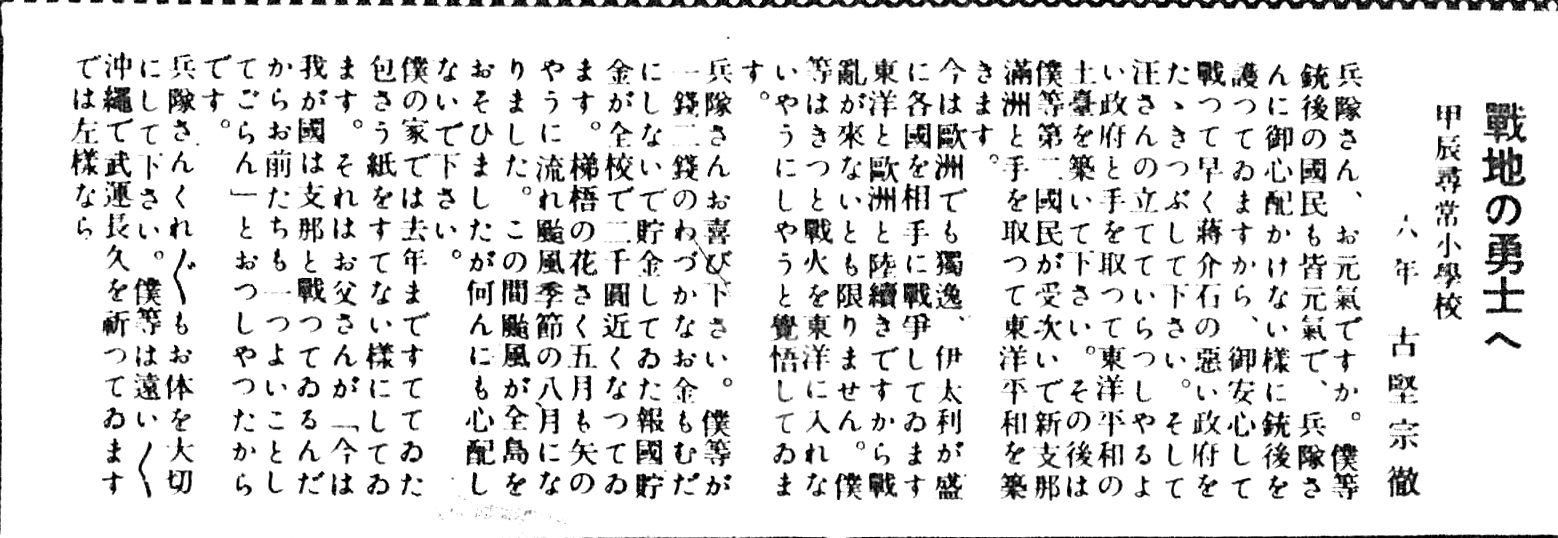 戰地の勇士へ
甲辰尋常小學校
六年　古堅宗徹
兵隊さん、お元氣ですか。僕等
銃後の國民も皆元氣で、兵隊さ
んに御心配かけない樣に銃後を
護つてゐますから、御安心して
戰つて早く蔣介石の惡い政府を
たゝきつぶして下さい。そして
汪さんの立てていらつしやるよ
い政府と手を取つて東洋平和の
土臺を築いて下さい。その後は
僕等第二國民が受次いで新支那
滿洲と手を取つて東洋平和を築
きます。
今は歐洲でも獨逸、伊太利が盛
に各國を相手に戰爭してゐます
東洋と歐洲と陸續きですから戰
亂が來ないとも限りません。僕
等はきつと戰火を東洋に入れな
いやうにしやうと覺悟してゐま
す。
兵隊さんお喜び下さい。僕等が
一錢二錢のわづかなお金もむだ
にしないで貯金してゐた報國貯
金が全校で二千圓近くなつてゐ
ます。梯梧の花さく五月も矢の
やうに流れ颱風季節の八月にな
りました。この間颱風が全島を
おそひましたが何んにも心配し
ないで下さい。
僕の家では去年まですててゐた
包さう紙をすてない樣にしてゐ
ます。それはお父さんが「今は
我が國は支那と戰つてゐるんだ
からお前たちも一つよいことし
てごらん」とおつしやつたから
です。
兵隊さんくれ〴〵もお体を大切
にして下さい。僕等は遠い〱
沖繩で武運長久を祈つてゐます
では左樣なら